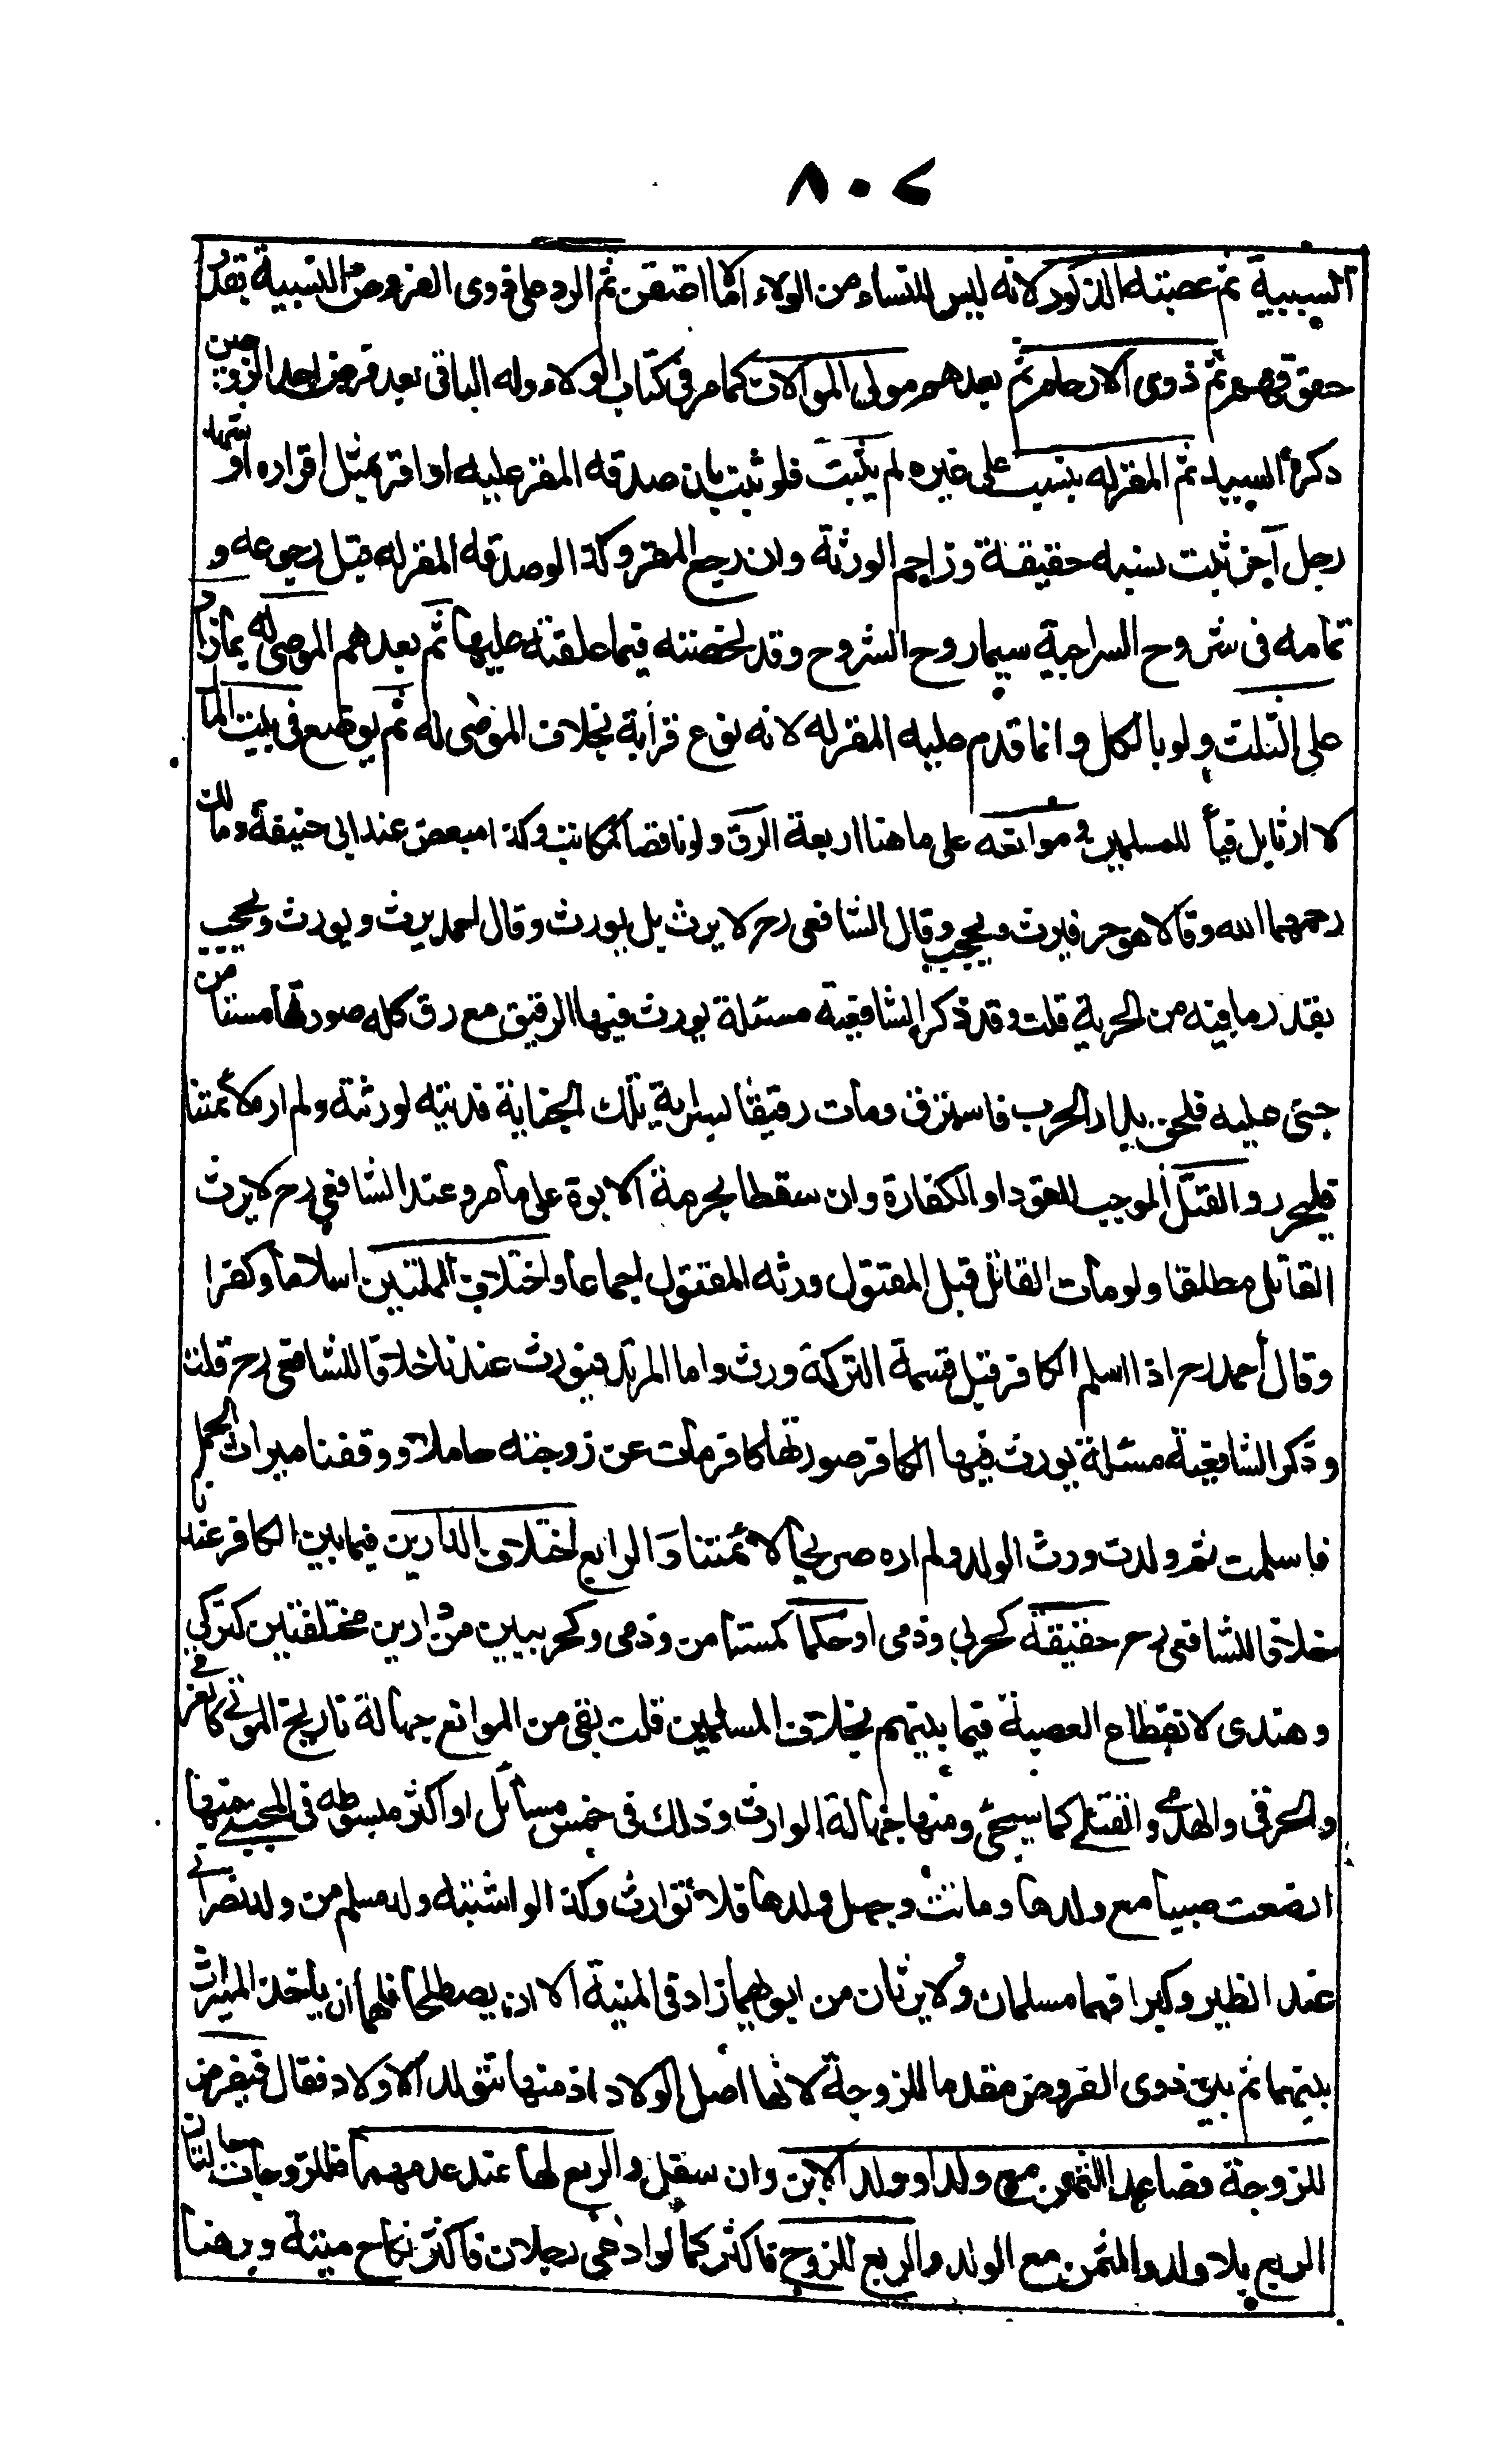 ٨٠٧
السببية ثم عصبته الذكور لانه ليس للنساء من الولاء الا ما اعتقن ثم الرد على ذوى الفروض النسبية بقدر
حقوقهم ثم ذوى الارحام ثم بعدهم مولى الموالات كما مر فى كتاب الولاء وله الباقى بعد فرض احد الزوجين
ذكره السيد ثم المقر له بنسب على غيره لم يثبت فلو ثبت بان صدقه المقر عليه او اقر بمثل اقراره او شهد
رجل آخر ثبت نسبه حقيقة وزاحم الورثة وان رجع المقر وكذا لو صدقه المقر له قبل رجوعه و
تمامه فى شروح السراجية سيما روح الشروح وقد لخصته فيما علقته عليها ثم بعدهم الموصى له بما زاد
على الثلث ولو بالكل وانما قدم عليه المقر له لانه نوع قرابة بخلاف الموصى له ثم يوضع فى بيت المال
لا ارثا بل فيأ للمسلمين و موانعه على ما هنا اربعة الرق ولو ناقصا كمكاتب وكذا مبعض عند ابى حنيفة ومالك
رحمهما الله وقالا هو حر فيرث ويحجب وقال الشافعى رح لا يرث بل يورث وقال احمد يرث ويورث ويحجب
بقدر ما فيه من الحرية قلت وقد ذكر الشافعية مسئلة يورث فيها الرقيق مع رق كله صورتها مستامن
جنى عليه فلحق بدار الحرب فاسترق ومات رقيقا بسراية تلك الجناية فديته لورثته ولم ار لائمتنا
فليحرر والقتل الموجب للقود او الكفارة وان سقطا بحرمة الابوة على ما مر وعند الشافعى رح لا يرث
القاتل مطلقا ولو مات القاتل قبل المقتول ورثه المقتول اجماعا واختلاف الملتين اسلاما وكفرا
وقال احمد رح اذا اسلم الكافر قبل قسمة التركة ورث واما المرتد فيورث عندنا خلافا للشافعى رح قلت
وذكر الشافعية مسئلة يورث فيها الكافر صورتها كافر مات عن زوجته حاملا ووقفنا ميراث الحمل
فاسلمت ثم ولدت ورث الولد ولم اره صريحا لائمتنا والرابع اختلاف الدارين فيما بين الكافر عندنا
خلافا للشافعى رح حقيقة كحربي وذمى او حكما كمستامن وذمى وكحربيين من دارين مختلفتين كتركي
وهندى لانقطاع العصمة فيما بينهم بخلاف المسلمين قلت بقى من الموانع جهالة تاريخ الموتى كالغرقى
والحرقى والهدمى والقتلى كما سيجئ ومنها جهالة الوارث وذلك فى خمس مسائل او اكثر مبسوطه فى المجتبى منها
ارضعت صبيا مع ولدها وماتت وجهل ولدها فلا توارث وكذا لو اشتبه ولد مسلم من ولد نصرانى
عند الظير وكبرا فهما مسلمان ولا يرثان من ابويهما زاد فى المنية الا ان يصطلحا فلهما ان ياخذا الميراث
بينهما ثم بدئ ذوى الفروض مقدما للزوجة لانها اصل الولاد اذ منها تتولد الاولاد فقال فيفرض
للزوجة فصاعدا الثمن مع ولد او ولد الابن وان سفل والربع لها عند عدمهما فللزوجات حالتان
الربع بلا ولد والثمن مع الولد والربع للزوج فاكثر كما لو ادعى رجلان فاكثر نكاح ميتة وبرهنا